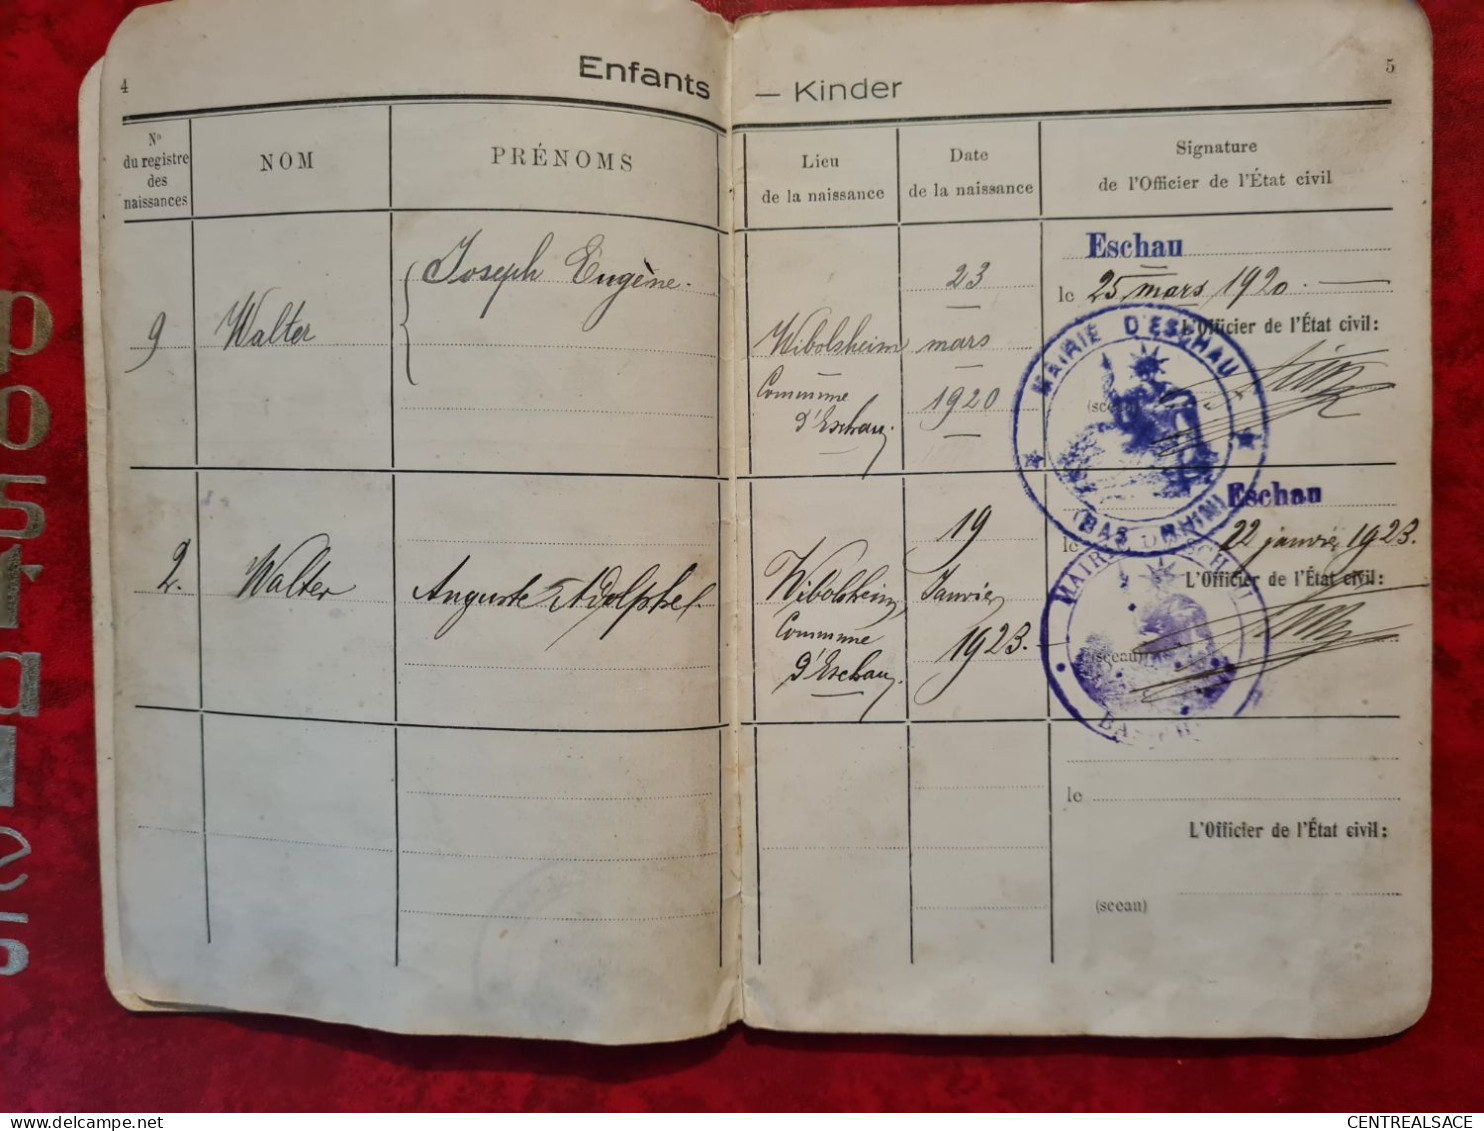 4
Enfants
— Kinder
5
Nº
du registre
des
naissances
NOM
PRÉNOMS
Lieu
de la naissance
Date
de la naissance
Signature
de l'Officier de l'État civil
9
Walter
Joseph Eugène.
Wibolsheim
Commune
d'Eschau.
23
mars
1920
Eschau
le 25 mars 1920.
L'Officier de l'État civil:
(sceau)
MAIRIE D'ESCHAU
(BAS-RHIN)
2.
Walter
Auguste Adolphe.
Wibolsheim,
Commune
d'Eschau.
19
Janvier
1923.
Eschau
le 22 janvier 1923.
L'Officier de l'État civil:
(sceau)
MAIRIE D'ESCHAU
le
L'Officier de l'État civil:
(sceau)
postalbums
CENTREALSACE